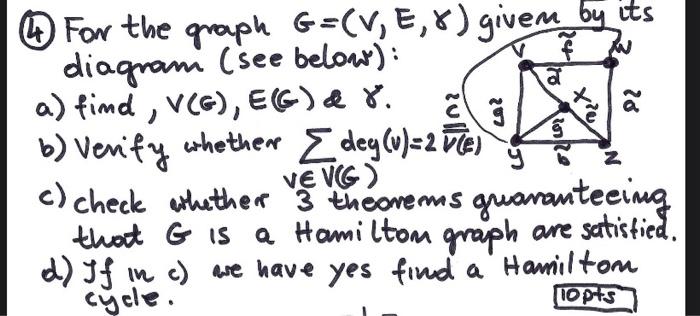 ④ For the graph G=(V, E, γ) given by its
diagram (see below):
a) find, V(G), E(G) & γ.
b) Verify whether Σ deg(v)=2 V(E)
v∈V(G)
c) check whether 3 theorems guaranteeing
that G is a Hamilton graph are satisfied.
d) If in c) we have yes find a Hamilton
cycle.
10pts
v f̃ w
d̃
x
c̃ g̃ ẽ ã
g̃
y b̃ z